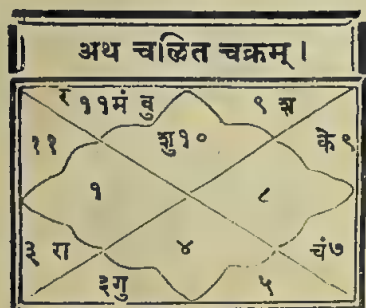 अथ चलित चक्रम् ।
र ११ मं बु
९ श
११
शु १०
के ९
१
८
३ रा
४
चं ७
३ गु
५